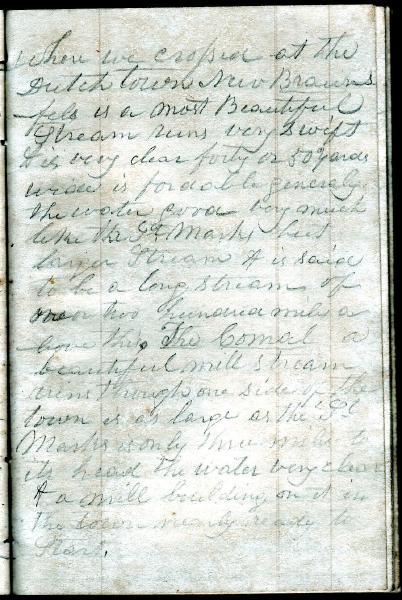 where we crossed at the
Dutch town New Brauns
fels is a most Beautiful
Stream runs very swift
it is very clear forty or 50 yards
wide is fordable generaly
the water good very much
like the St Marks but
larger Stream it is said
to be a long stream of
one or two hundred mile a
bove this, The Comal a
beautiful mill stream
runs through one side of the
town is as large as the St
Marks is only three mile to
its head the water very clear
& a mill building on it in
the town nearly ready to
Start.